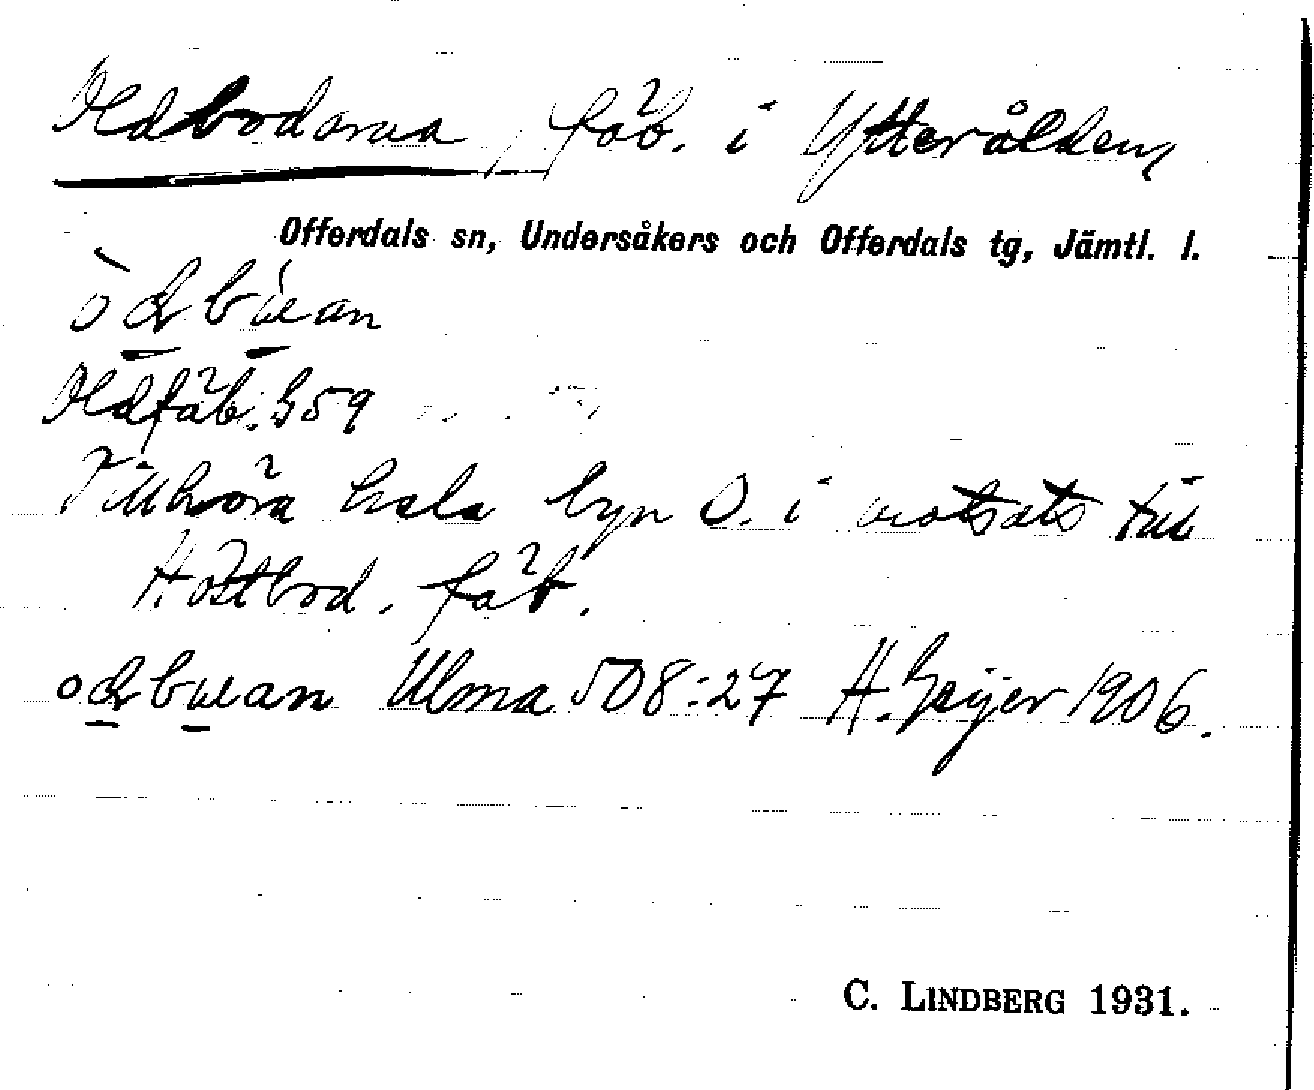 Oldbodarna, fäb. i Ytterolden,
Offerdals sn, Undersåkers och Offerdals tg, Jämtl. l.
Oldfäb. G59
Tillhöra hela byn O. i motsats till
Höstbod. fäb.
Ulma 508:27 H. Geijer 1906.
C. LINDBERG 1931.